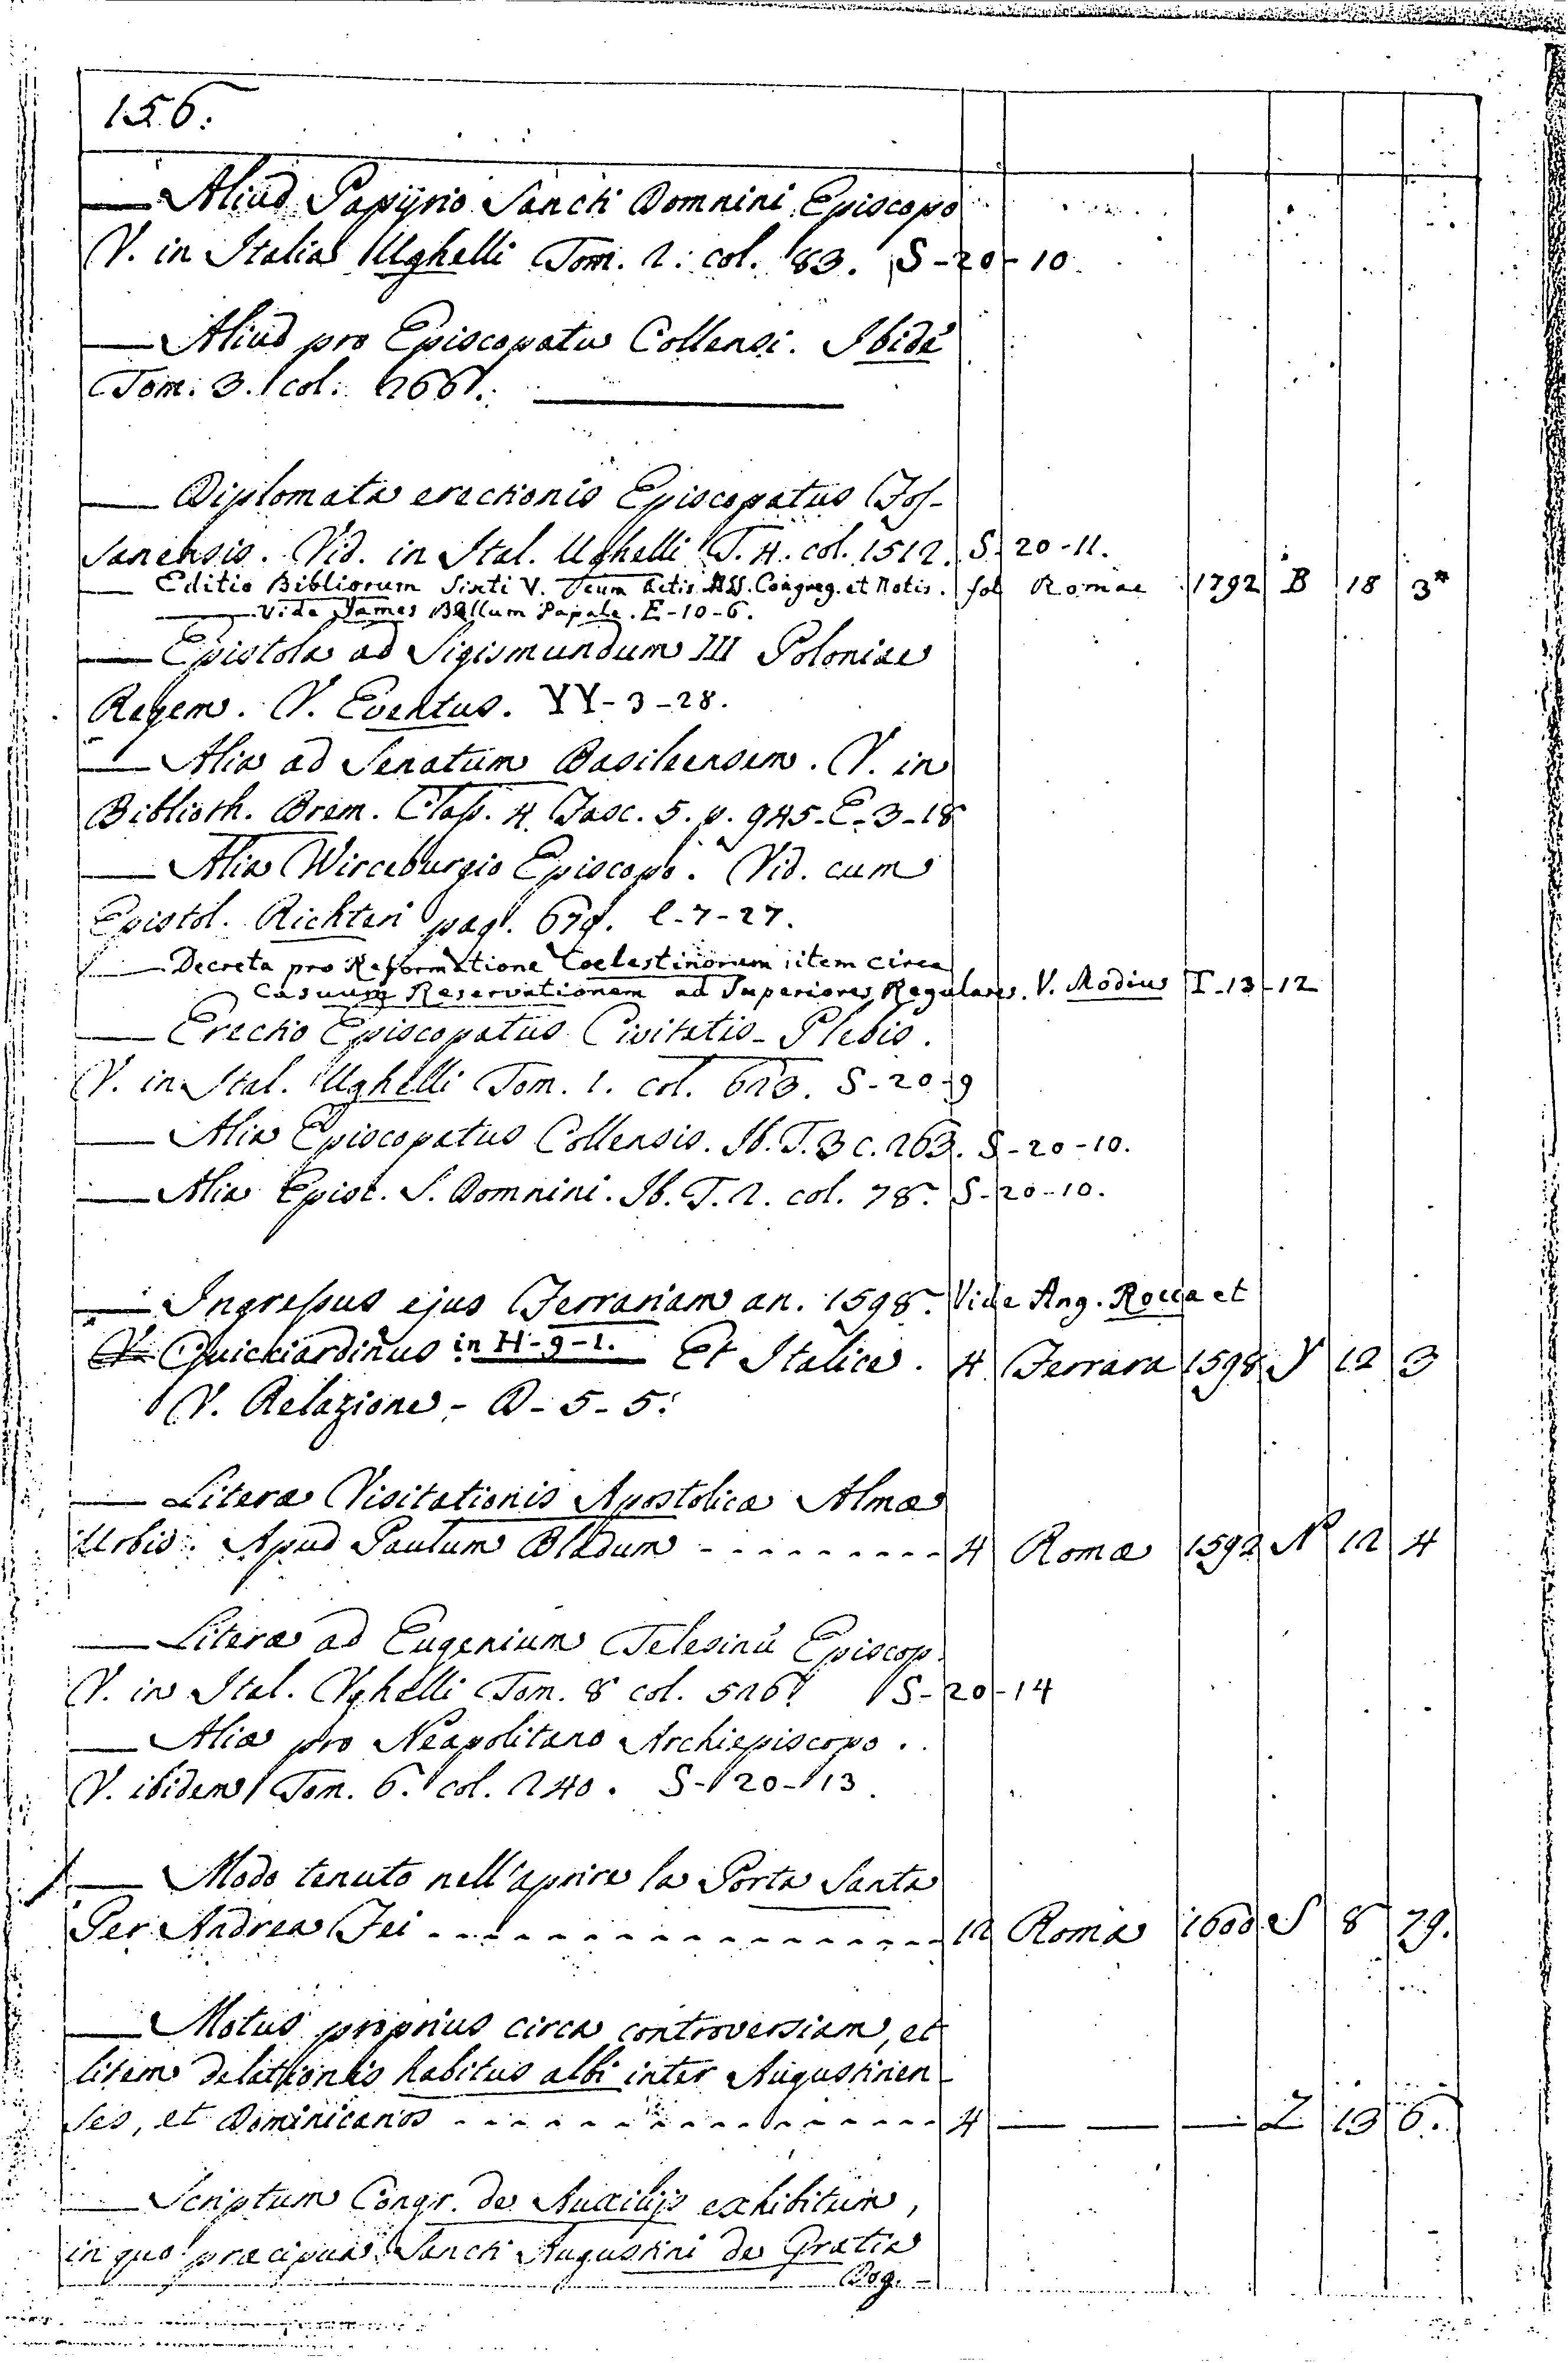 156.
— Aliud Papyrio Sancti Domnini Episcopo
V. in Italia Ughelli Tom. 2. col. 83. S-20-10.
— Aliud pro Episcopatu Collensi. Ibidē
Tom. 3. col. 266.
— Diplomata erectionis Episcopatus Fos-
sanensis. Vid. in Ital. Ughelli T. 4. col. 1512. S. 20-11.
— Editio Bibliorum Sixti V. cum Actis MSS. Congreg. et Notis. fol Romae 1792 B 18 3*
— Vide James Bellum Papale. E-10-6.
— Epistola ad Sigismundum III Poloniae
Regem. V. Eventus. YY-3-28.
— Alia ad Senatum Basileensem. V. in
Biblioth. Brem. Class. 4. Fasc. 5. p. 945. E-3-18
— Alia Wirceburgio Episcopo. Vid. cum
Epistol. Richteri pag. 679. l-7-27.
— Decreta pro Reformatione Coelestinorum; item circa
Casuum Reservationem ad Superiores Regulares. V. Modius T-13-12
— Erectio Episcopatus Civitatis-Plebis.
V. in Ital. Ughelli Tom. 1. col. 623. S-20-9
— Alia Episcopatus Collensis. Ib. T. 3 c. 263. S-20-10.
— Alia Epist. S. Domnini. Ib. T. 2. col. 78. S-20-10.
— Ingressus ejus Ferrariam an. 1598. Vide Ang. Rocca et
Guicciardinus in H-9-1. Et Italice. 4 Ferrara 1598 Y 12 3
V. Relazione - Q-5-5.
— Literæ Visitationis Apostolicæ Almæ
Urbis. Apud Paulum Bladum - - - - - - - - - 4 Romæ 1592 N 12 4
— Literæ ad Eugenium Telesinū Episcop.
V. in Ital. Ughelli Tom. 8 col. 526. S-20-14
— Aliæ pro Neapolitano Archiepiscopo.
V. ibidem Tom. 6. col. 240. S-20-13
— Modo tenuto nell'aprire la Porta Santa
Per Andrea Fei - - - - - - - - - - - - - - - - 12 Roma 1600 S 8 29.
— Motus proprius circa controversiam, et
litem delationis habitus albi inter Augustinen-
ses, et Dominicanos - - - - - - - - - - - - - - - 4 — — — Z 13 6.
— Scriptum Congr. de Auxilijs exhibitum,
in quo præcipua Sancti Augustini de Gratia
Dog.-